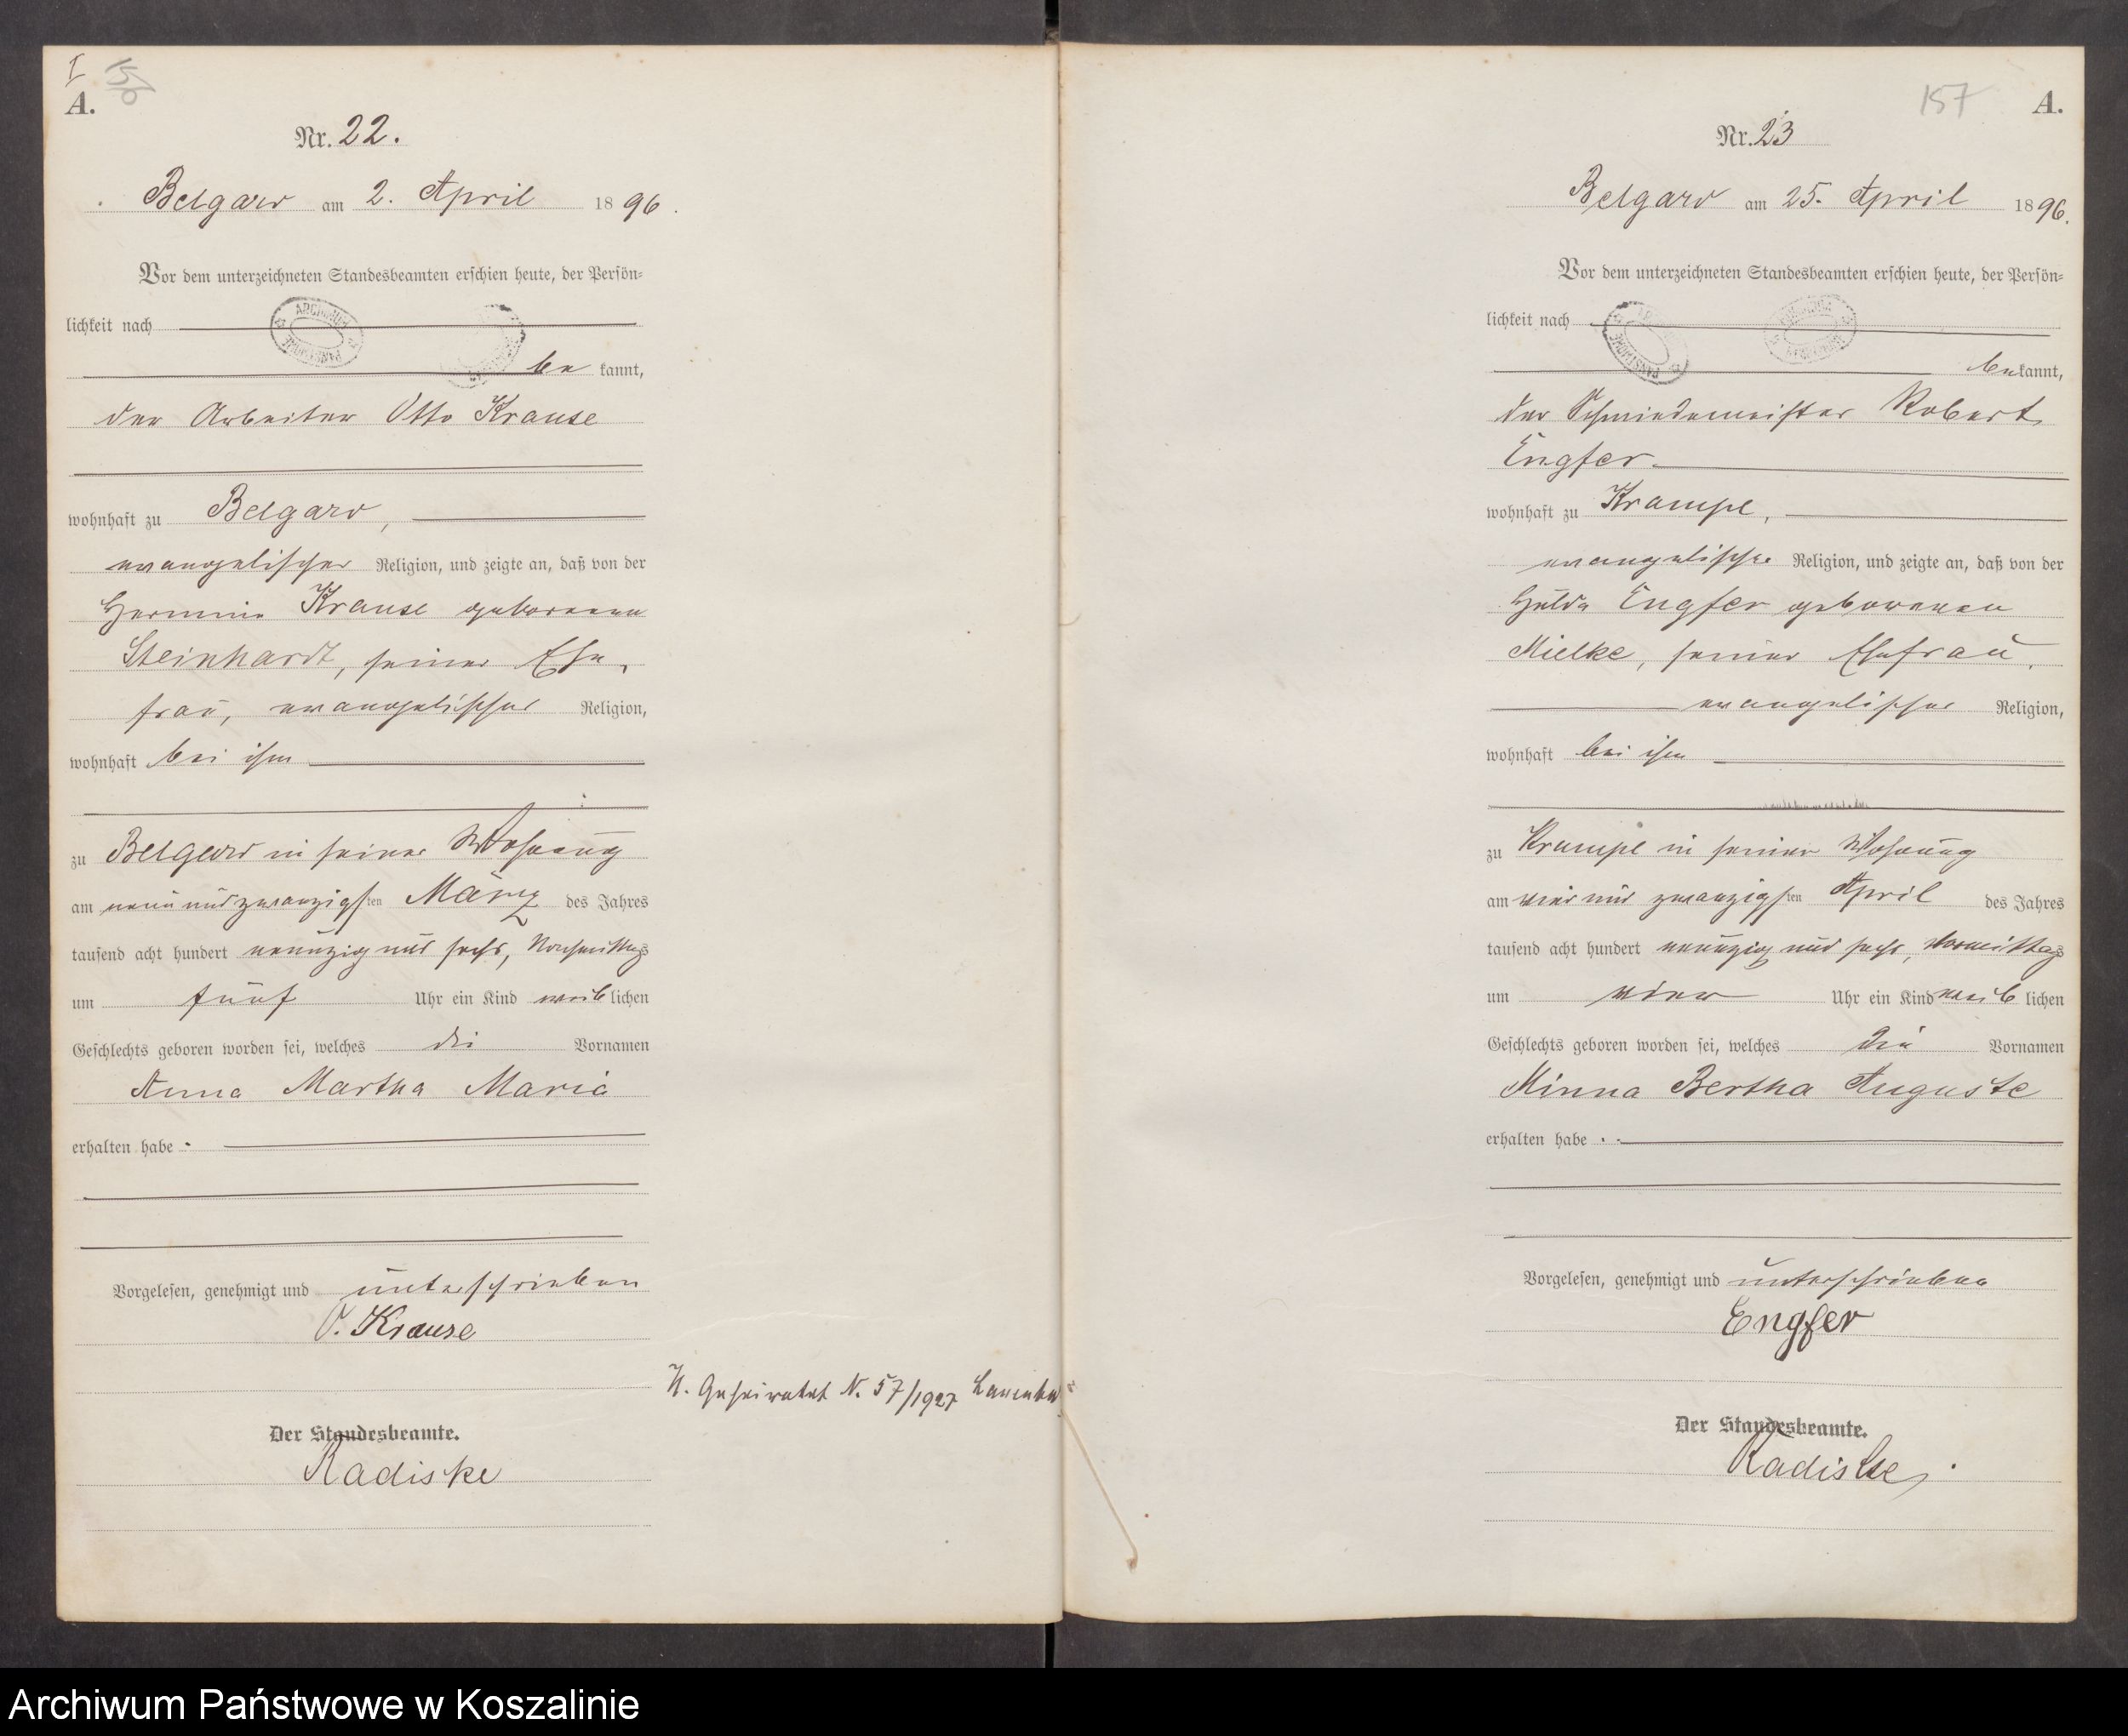 I
A.
156
Nr. 22.
Belgard am 2. April 1896.
Vor dem unterzeichneten Standesbeamten erschien heute, der Persön-
lichkeit nach
bekannt,
der Arbeiter Otto Krause
wohnhaft zu Belgard,
evangelischer Religion, und zeigte an, daß von der
Hermine Krause geborenen
Steinhardt, seiner Ehe-
frau, evangelischer Religion,
wohnhaft bei ihm
zu Belgard in seiner Wohnung
am neunundzwanzigsten März des Jahres
tausend acht hundert neunzig und sechs, Nachmittags
um fünf Uhr ein Kind weiblichen
Geschlechts geboren worden sei, welches die Vornamen
Anna Martha Maria
erhalten habe.
Vorgelesen, genehmigt und unterschrieben
O. Krause
H. Geheiratet N. 57/1927
Der Standesbeamte.
Radiske
157 A.
Nr. 23
Belgard am 25. April 1896.
Vor dem unterzeichneten Standesbeamten erschien heute, der Persön-
lichkeit nach
bekannt,
der Schmiedemeister Robert
Engfer
wohnhaft zu Krampe,
evangelischer Religion, und zeigte an, daß von der
Hulda Engfer geborenen
Mielke, seiner Ehefrau,
evangelischer Religion,
wohnhaft bei ihm
zu Krampe in seiner Wohnung
am vier und zwanzigsten April des Jahres
tausend acht hundert neunzig und sechs, Vormittags
um vier Uhr ein Kind weiblichen
Geschlechts geboren worden sei, welches die Vornamen
Minna Bertha Auguste
erhalten habe.
Vorgelesen, genehmigt und unterschrieben
Engfer
Der Standesbeamte.
Radiske
Archiwum Państwowe w Koszalinie